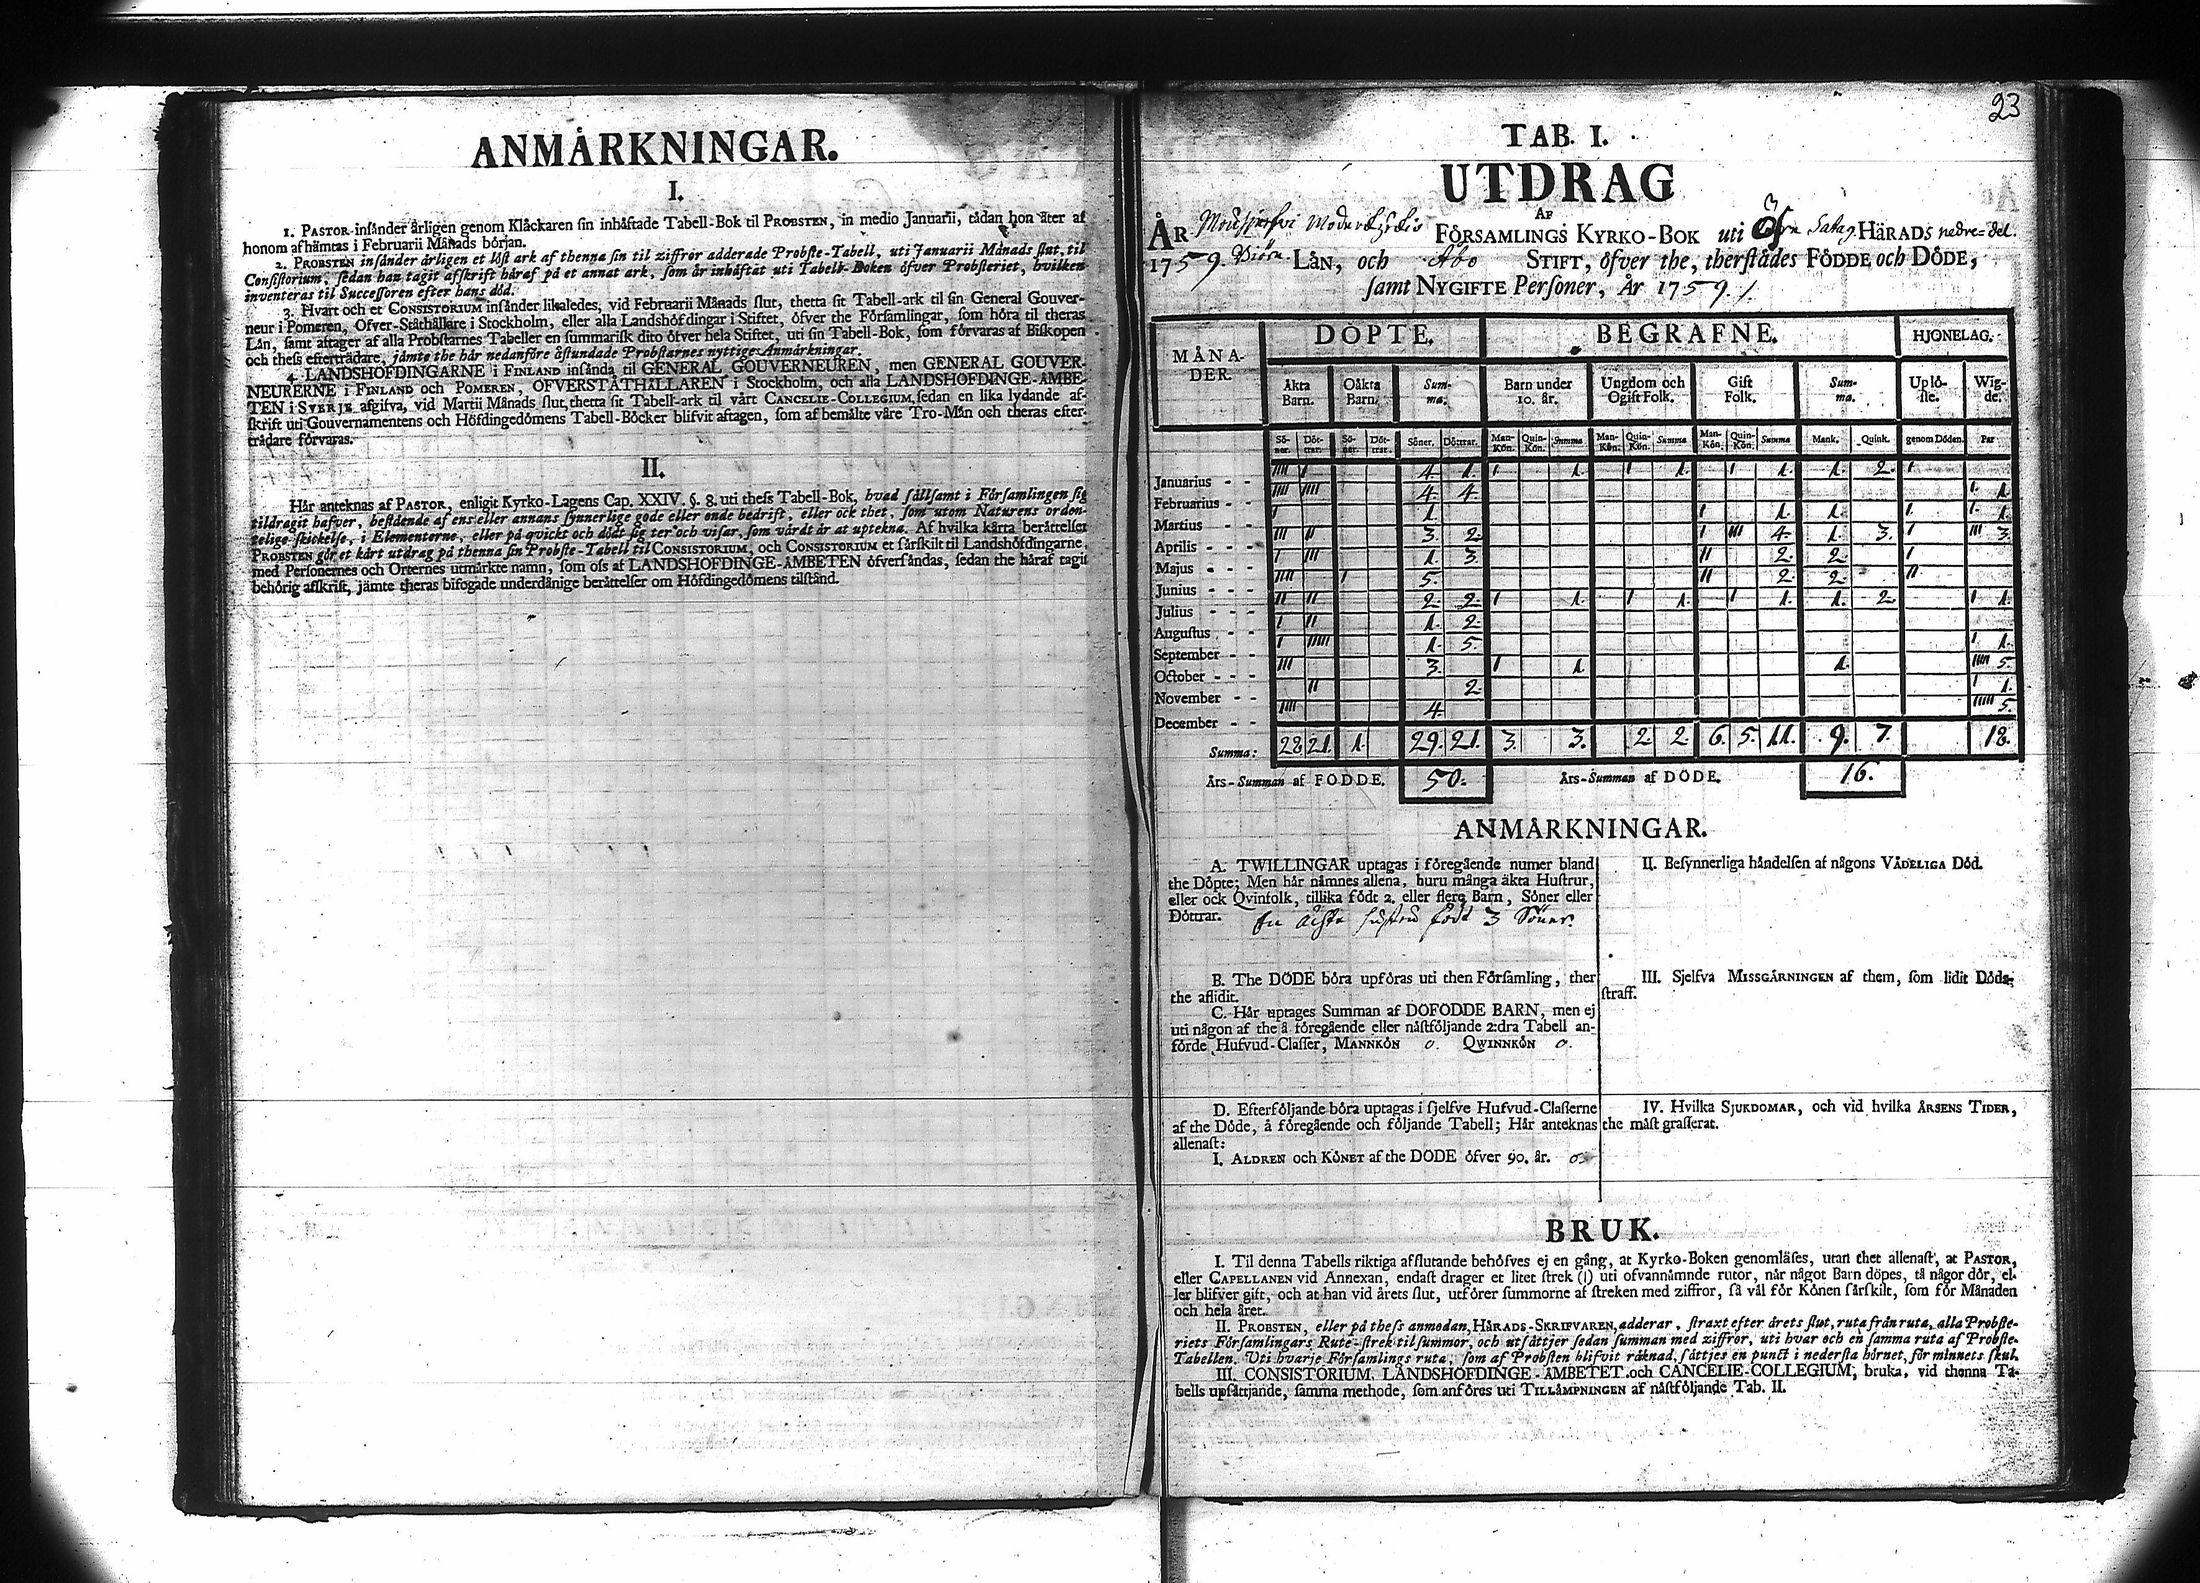 ANMÅRKNINGAR.
I.
1. PASTOR insånder årligen genom Klåckaren sin inhåftade Tabell-Bok til PROBSTEN, in medio Januarii, tådan hon åter af
honom afhämtas i Februarii Månads början.
2. PROBSTEN insånder årligen et löst ark af thenna sin til ziffror adderade Probste-Tabell, uti Januarii Månads slut, til
Consistorium, sedan han tagit afskrift håraf på et annat ark, som år inhåftåt uti Tabell-Boken öfver Probsteriet, hvilken
inventeras til Successoren efter hans död.
3. Hvart och et CONSISTORIUM insånder likaledes, vid Februarii Månads slut, thetta sit Tabell-ark til sin General Gouver-
neur i Pomeren, Öfver-Ståthållare i Stockholm, eller alla Landshöfdingar i Stiftet, öfver the Församlingar, som höra til theras
Lån, samt aftager af alla Probstarnes Tabeller en summarisk dito öfver hela Stiftet, uti sin Tabell-Bok, som förvaras af Biskopen
och thess efterträdare, jämte the hår nedanföre åstundade Probstarnes nyttige Anmärkningar.
4. LANDSHÖFDINGARNE i FINLAND insånda til GENERAL GOUVERNEUREN, men GENERAL GOUVER-
NEURERNE i FINLAND och POMEREN, ÖFVERSTÅTHÅLLAREN i Stockholm, och alla LANDSHÖFDINGE-ÅMBE-
TEN i SVERJE afgifva, vid Martii Månads slut, thetta sit Tabell-ark til vårt CANCELIE-COLLEGIUM, sedan en lika lydande af-
skrift uti Gouvernamentens och Höfdingedömens Tabell-Böcker blifvit aftagen, som af bemålte våre Tro-Mån och theras efter-
trådare förvaras.
II.
Hår anteknas af PASTOR, enligit Kyrko-Lagens Cap. XXIV. §. 8. uti thess Tabell-Bok, hvad sållsamt i Församlingen sig
tildragit hafver, bestående af ens eller annans synnerlige gode eller onde bedrift, eller ock thet, som utom Naturens orden-
telige skickelse, i Elementerne, eller på qvickt och dödt sig ter och visar, som värdt är at uptekna. Af hvilka kårta beråttelser
PROBSTEN gör et kårt utdrag på thenna sin Probste-Tabell til CONSISTORIUM, och CONSISTORIUM et sårskilt til Landshöfdingarne,
med Personernes och Orternes utmårkte namn, som oss af LANDSHÖFDINGE-ÅMBETEN öfversåndas, sedan the håraf tagit
behörig afskrift, jämte theras bifogade underdånige beråttelser om Höfdingedömens tilstånd.
23
TAB. I.
UTDRAG
AF
ÅR FÖRSAMLINGS KYRKO-BOK uti HÄRADS nedre-del.
1759. LÅN, och Åbo STIFT, öfver the, therstådes FÖDDE och DÖDE,
samt NYGIFTE Personer, År 1759.
MÅNA-DER. DÖPTE. BEGRAFNE. HJONELAG.
Åkta Barn. Oåkta Barn. Sum-ma. Barn under 10. år. Ungdom och Ogift Folk. Gift Folk. Sum-ma. Uplö-ste. Wig-de.
Sö-ner. Döt-trar. Sö-ner. Döt-trar. Söner. Döttrar. Man-Kön. Quin-Kön. Summa Man-Kön. Quin-Kön. Summa Man-Kön. Quin-Kön. Summa Mank. Quink. genom Döden. Par
Januarius - - IIII I 4. 1. I 1. I 1. I 1. 1. 2. I
Februarius - - IIII IIII 4. 4. I. 1.
Martius - - I 1. I 1. 1. I I. 1.
Aprilis - - - III II 3. 2. I III 4. 1. 3. I III 3.
Majus - - - I III 1. 3. II 2. 2. I
Junius - - - IIII I 5. II 2. 2. II
Julius - - - II II 2. 2. I 1. I 1. I 1. 1. 2. I 1.
Augustus - - I II 1. 2.
September - - I IIIII 1. 5. I 1.
October - - - III 3. I 1. 1. IIIII 5.
November - - II 2. I 1.
December - - IIII 4. IIIII 5.
Summa: 28. 21. 1. 29. 21. 3. 3. 2. 2. 6. 5. 11. 9. 7. 18.
Års-Summan af FÖDDE. 50. Års-Summan af DÖDE. 16.
ANMÅRKNINGAR.
A. TWILLINGAR uptagas i föregående numer bland
the Döpte; Men hår nåmnes allena, huru många åkta Hustrur,
eller ock Qvinfolk, tillika födt 2. eller flere Barn, Söner eller
Döttrar. En ächta hustru födt 3 Söner.
B. The DÖDE böra upföras uti then Församling, ther
the aflidit.
C. Hår uptages Summan af DÖFÖDDE BARN, men ej
uti någon af the å föregående eller nåstföljande 2:dra Tabell an-
förde Hufvud-Classer, MANNKÖN 0. QWINNKÖN 0.
D. Efterföljande böra uptagas i sjelfve Hufvud-Classerne
af the Döde, å föregående och följande Tabell; Hår anteknas
allenast:
I. ÅLDREN och KÖNET af the DÖDE öfver 90. år. 0.
II. Besynnerliga håndelsen af någons VÅDELIGA Död.
III. Sjelfva MISSGÅRNINGEN af them, som lidit Döds-
straff.
IV. Hvilka SJUKDOMAR, och vid hvilka ÅRSENS TIDER,
the måst grasserat.
BRUK.
I. Til denna Tabells riktiga afslutande behöfves ej en gång, at Kyrko-Boken genomläses, utan thet allenast, at PASTOR,
eller CAPELLANEN vid Annexan, endast drager et litet strek (|) uti ofvannåmnde rutor, når något Barn döpes, tå någor dör, el-
ler blifver gift, och at han vid årets slut, utförer summorne af streken med ziffror, så vål för Könen sårskilt, som för Månaden
och hela året.
II. PROBSTEN, eller på thess anmodan, HÄRADS-SKRIFVAREN, adderar, straxt efter årets slut, ruta från ruta, alla Probste-
riets Församlingars Rute-strek til summor, och utsåttjer sedan summan med ziffror, uti hvar och en samma ruta af Probste-
Tabellen. Uti hvarje Församlings ruta, som af Probsten blifvit råknad, såttjes en punct i nedersta hörnet, för minnets skul.
III. CONSISTORIUM, LANDSHÖFDINGE-ÅMBETET och CANCELIE-COLLEGIUM, bruka, vid thenna Ta-
bells upsåttjande, samma methode, som anföres uti TILLÅMPNINGEN af nåstföljande Tab. II.